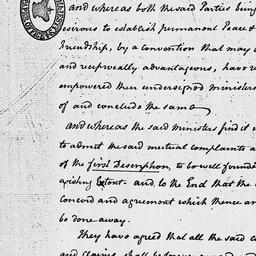 and whereas both the said Parties being
desirous to establish permanent Peace &
Friendship, by a convention that may
and reciprocally advantageous, have
empowered their undersigned Ministers
of and conclude the same
and whereas the said Ministers find it
to admit the said mutual complaints
of the first Description, to be well founded
existing Extent. and to the End that the
concord and agreement which thence
be done away.
They have agreed that all the said
and